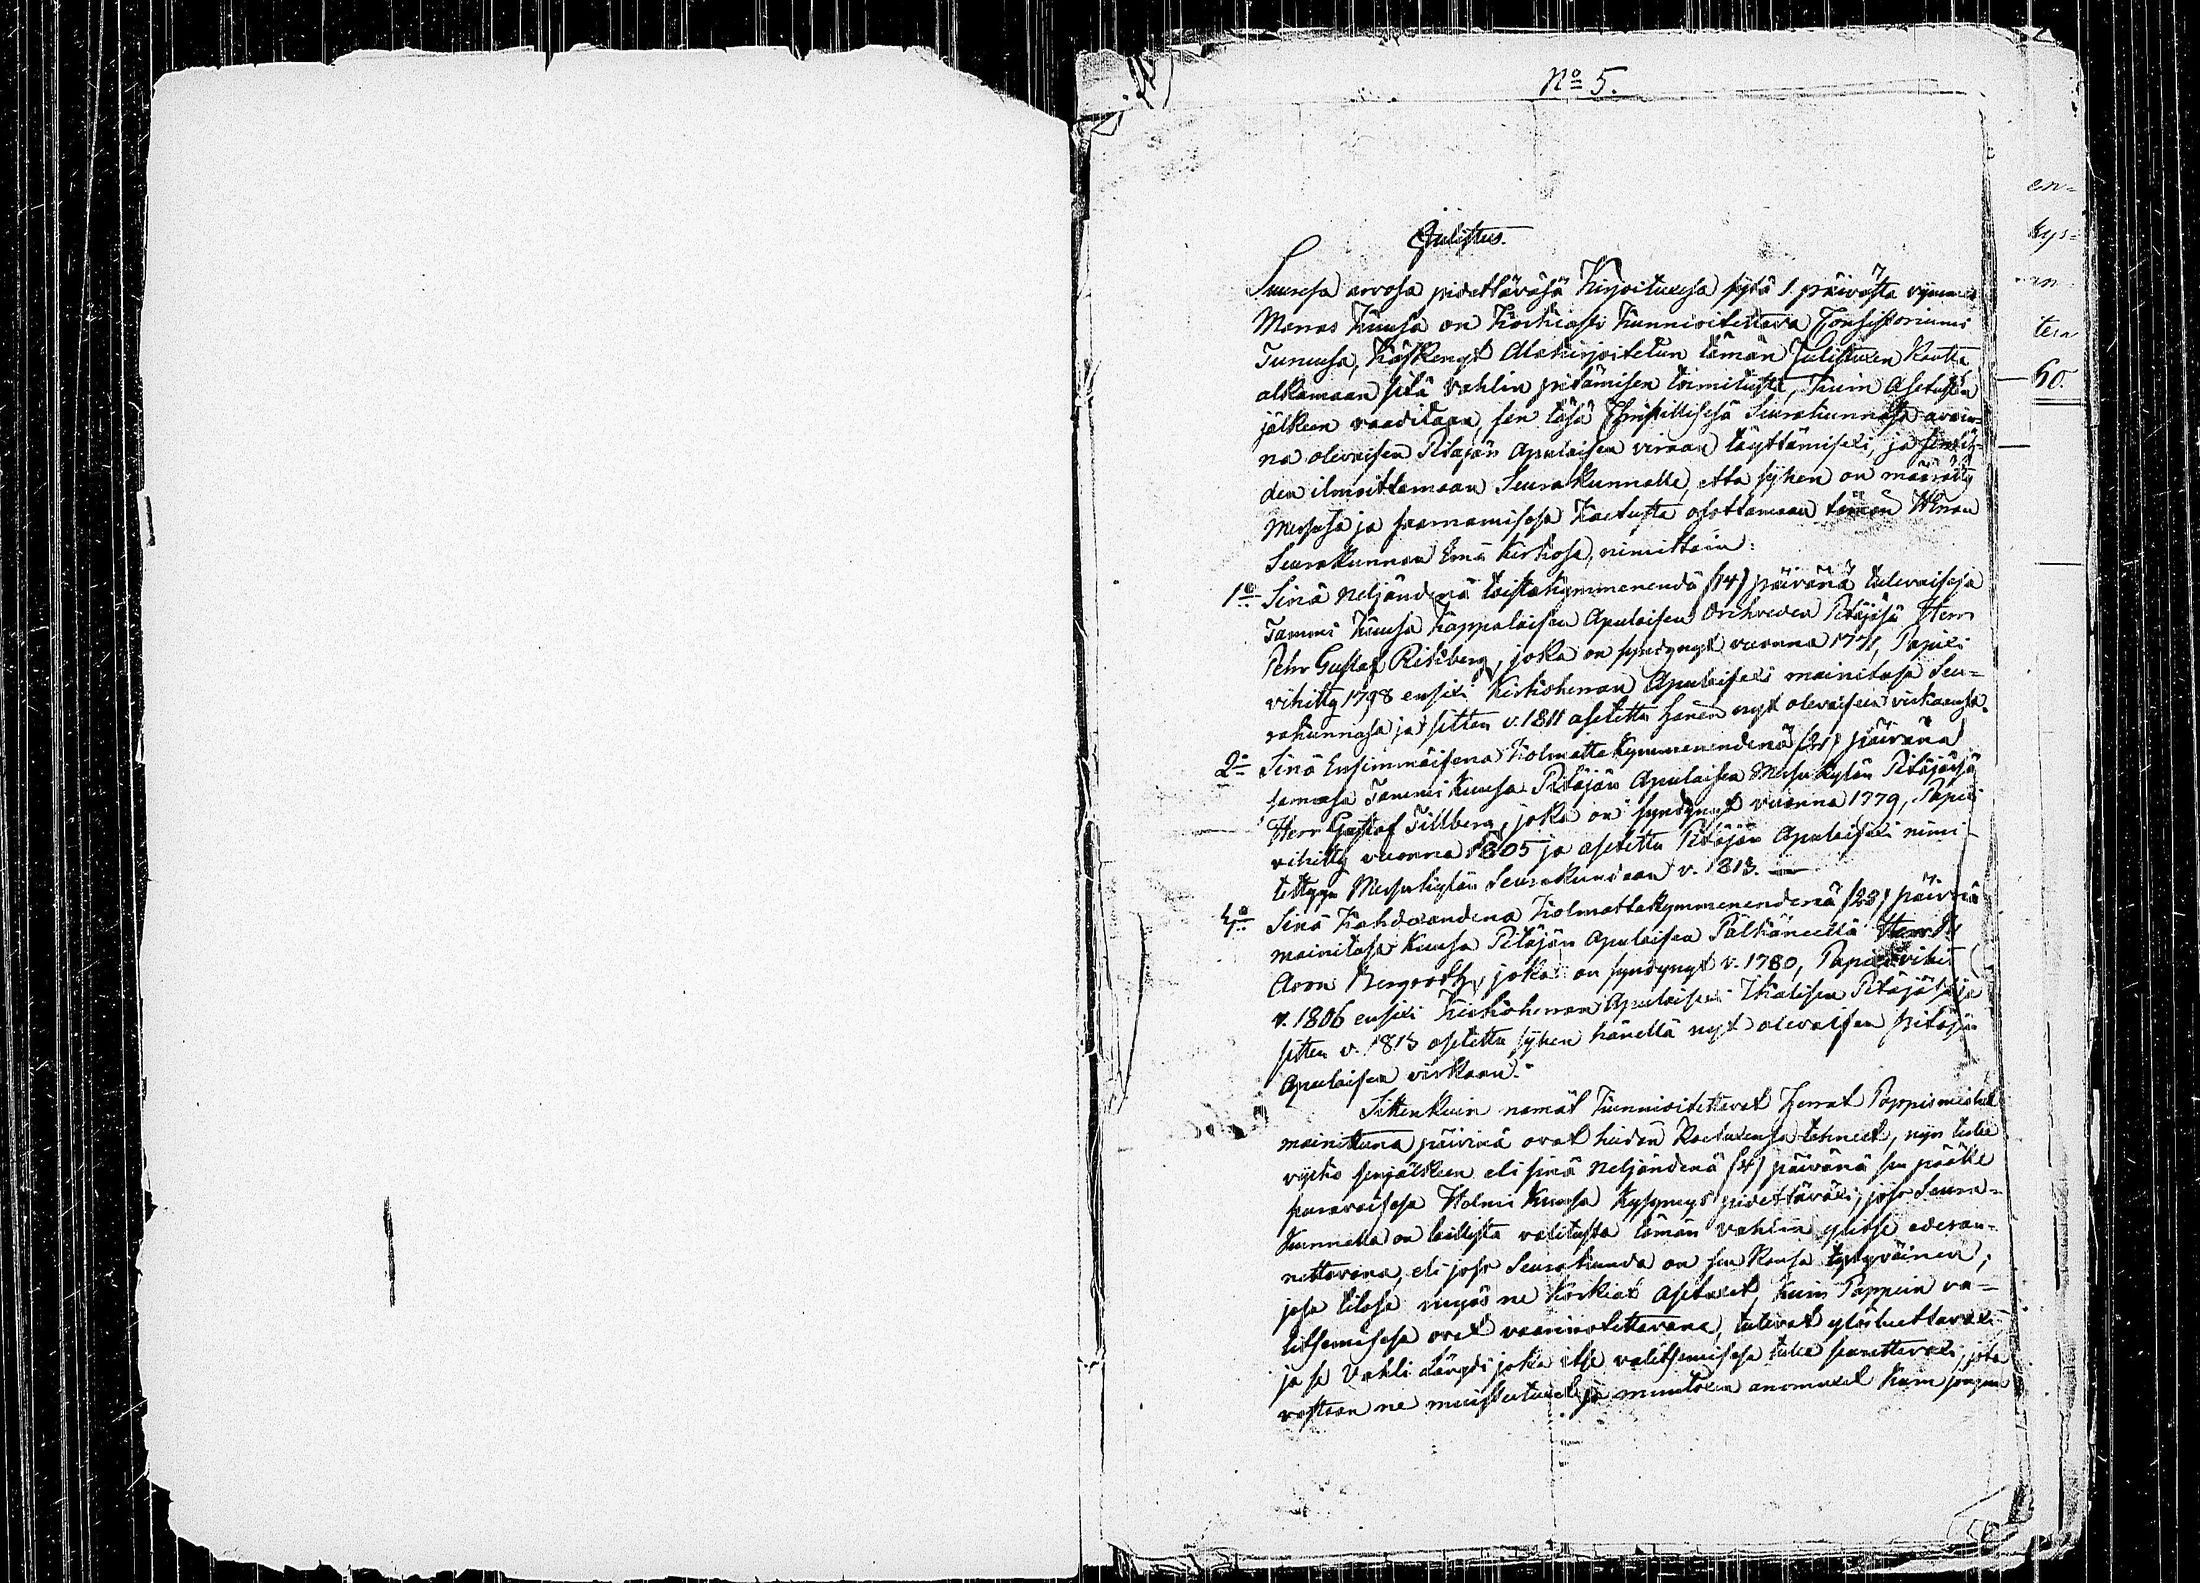 No 5.
Julistus.
Suuresa arvosa pidettäväsä Kirjoituxesa sijtä 1. päivästä vijmeis
Marras Kuusa on Korkiasti Kunnioitettava Consistoriumi
Turuusa, Käskenyt Alakirjoitetun tämän Julistuxen Kautta
alkamaan sitä vahlin pitämisen toimitusta, kuin Asetusten
jälkeen vaaditaan, sen täsä Christillisesä Seurakunnasa avoin-
na olevaisen Pitäjän Apulaisen viraan täyttämisexi, ja
den ilmoittamaan Seurakunnalle, että sijhen on määrätty
Messusa ja saarnamisesa Koetusta osottamaan tämän
Seurakunnan Emä Kirkosa, nimittäin:
1o Sinä Neljändenä toistakymmenendä (14) päivänä tulevaisesa
Tammi Kuusa Kappalaisen Apulaisen Orihveden Pitäjäsä Herr
Pehr Gustaf Ritzberg, joka on syndynyt vuonna 1771, Papixi
vihitty 1798 ensixi Kirkoherran Apulaisexi mainitusa Seu-
rakunnasa ja sitten v. 1811 asetettu hänen nyt olevaiseen virkaansa.
2o Sinä Ensimmäisenä Kolmattakymmenendenä (21) päivänä
samasa Tammi Kuusa Pitäjän Apulaisen Messukylän Pitäjäsä
Herr Gustaf Tillberg, joka on syndynyt vuonna 1779, Papixi
vihitty vuonna 1805 ja asetettu Pitäjän Apulaisexi nimi-
tettyyn Messukylän Seurakundaan v. 1813.
4o Sinä Kahdexandena Kolmattakymmenendenä (28) päivänä
mainitusa Kuusa Pitäjän Apulaisen Pälkäneellä Herr
Aron Bergroth, joka on syndynyt v. 1780, Papixi vihit
v. 1806 ensixi Kirkoherran Apulaisexi Ikalisen Pitäjäsä ja
sitten v. 1813 asetettu sijhen hänellä nyt olevaisen Pitäjän
Apulaisen virkaan.
Sittenkuin nämät Kunnioitettavat Herrat Pappismiehet
mainittuna päivinä ovat heidän Koetuxensa tehneet, nijn tulee
vijcko senjälkeen eli sinä Neljändenä (4) päivänä sen päälle
seuravaisesa Helmi Kuusa Kysymys pidettäväxi, jos Seura-
kunnalla on laillista valitusta tämän vahlin ylitse edesan-
nettavana, eli jos Seurakunda on sen Kansa tytyväinen;
josa tilasa myös ne Korkiat Asetuxet, kuin Pappein va-
litsemisesa ovat vaarinotettavana, tulevat ylösluettavaxi
ja se Vahli längdi joka itse valitsemisesa tulee seurattavaxi, jota
vastaan ne muistutuxet ja muutoxen anomuxet kuin jongun
en-
kys-
tera
60.